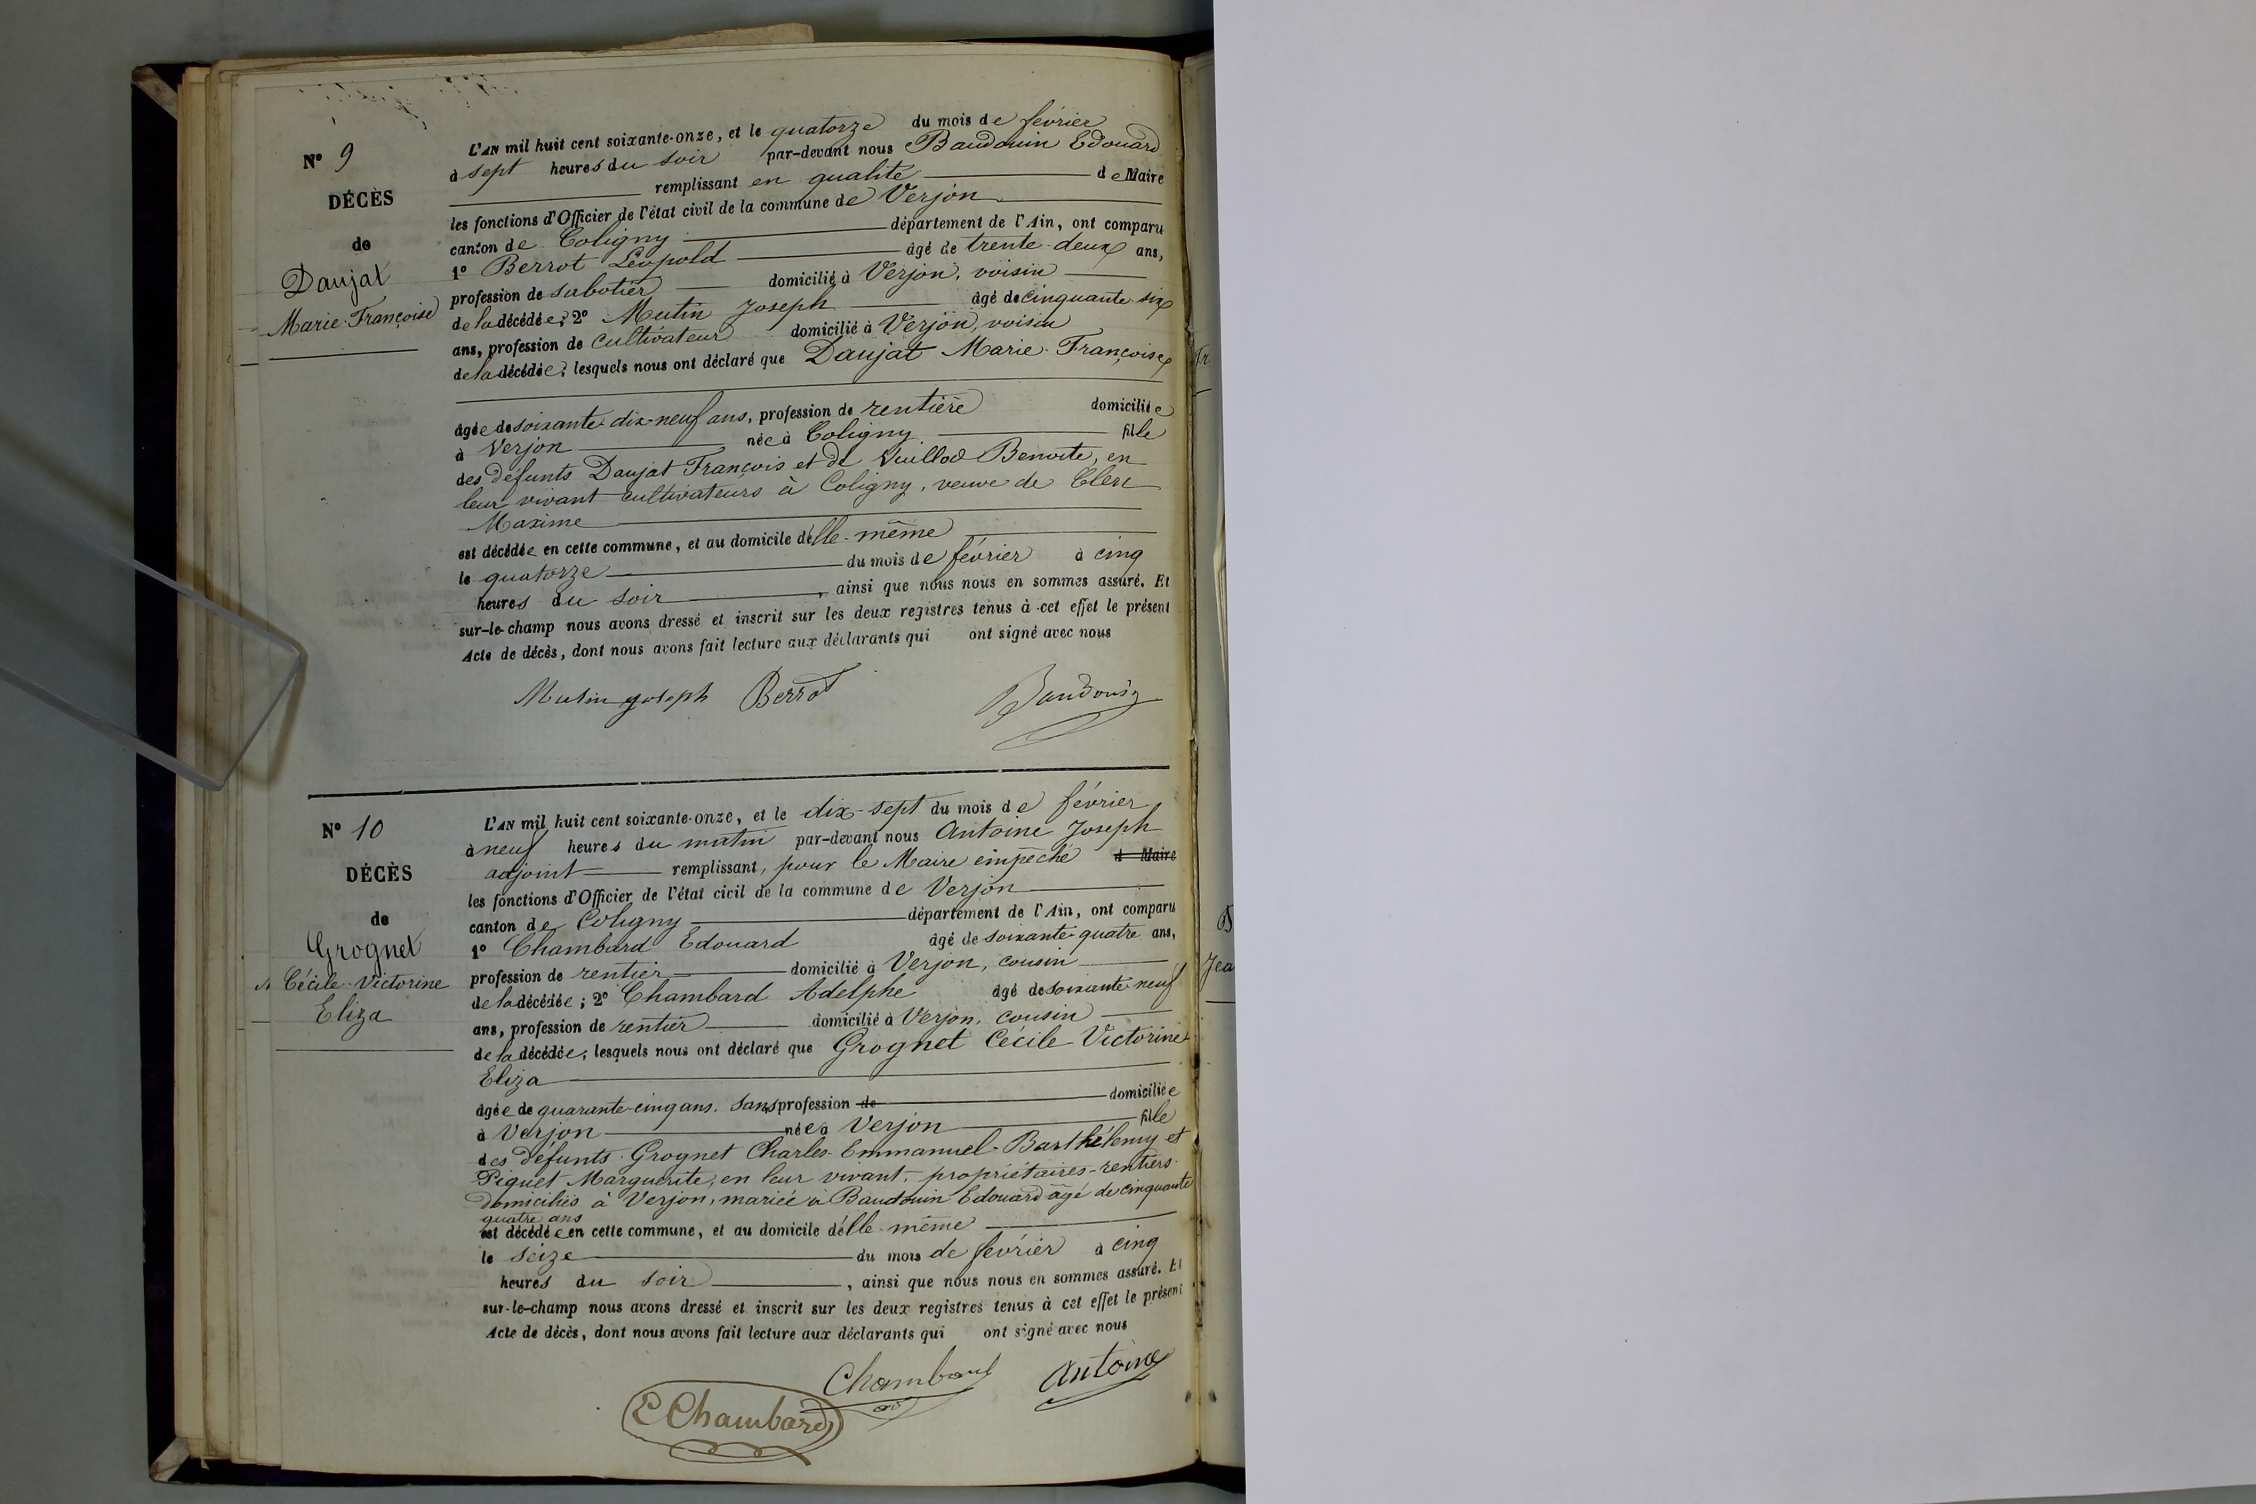 N° 9
DÉCÈS
de
Daujat
Marie-Françoise
L'AN mil huit cent soixante-onze, et le quatorze du mois de février
à sept heures du soir par-devant nous Baudouin Edouard
remplissant en qualité de Maire
les fonctions d'Officier de l'état civil de la commune de Verjon
canton de Coligny département de l'Ain, ont comparu
1° Berrot Léopold âgé de trente-deux ans,
profession de sabotier domicilié à Verjon, voisin
de la décédée; 2° Mutin Joseph âgé de cinquante-six
ans, profession de cultivateur domicilié à Verjon, voisin
de la décédée; lesquels nous ont déclaré que Daujat Marie-Françoise
âgée de soixante-dix-neuf ans, profession de rentière domiciliée
à Verjon née à Coligny fille
des défunts Daujat François et de Vuillod Benoite, en
leur vivant cultivateurs à Coligny, veuve de Clerc
Maxime
est décédée en cette commune, et au domicile d'elle-même
le quatorze du mois de février à cinq
heures du soir, ainsi que nous nous en sommes assuré. Et
sur-le-champ nous avons dressé et inscrit sur les deux registres tenus à cet effet le présent
Acte de décès, dont nous avons fait lecture aux déclarants qui ont signé avec nous
Mutin joseph Berrot Baudouin
N° 10
DÉCÈS
de
Grognet
Cécile-Victorine
Eliza
L'AN mil huit cent soixante-onze, et le dix-sept du mois de février
à neuf heures du matin par-devant nous Antoine Joseph
adjoint remplissant, pour le Maire empêché d Maire
les fonctions d'Officier de l'état civil de la commune de Verjon
canton de Coligny département de l'Ain, ont comparu
1° Chambard Edouard âgé de soixante-quatre ans,
profession de rentier domicilié à Verjon, cousin
de la décédée; 2° Chambard Adelphe âgé de soixante-neuf
ans, profession de rentier domicilié à Verjon, cousin
de la décédée; lesquels nous ont déclaré que Grognet Cécile-Victorine
Eliza
âgée de quarante-cinq ans. sans profession de domiciliée
à Verjon née à Verjon fille
des défunts Grognet Charles-Emmanuel-Barthélemy et
Piquet Marguerite, en leur vivant, propriétaires-rentiers
domiciliés à Verjon, mariée à Baudouin Edouard âgé de cinquante
quatre ans
est décédée en cette commune, et au domicile d'elle-même
le seize du mois de février à cinq
heures du soir, ainsi que nous nous en sommes assuré. Et
sur-le-champ nous avons dressé et inscrit sur les deux registres tenus à cet effet le présent
Acte de décès, dont nous avons fait lecture aux déclarants qui ont signé avec nous
Chambard Antoine
E Chambard